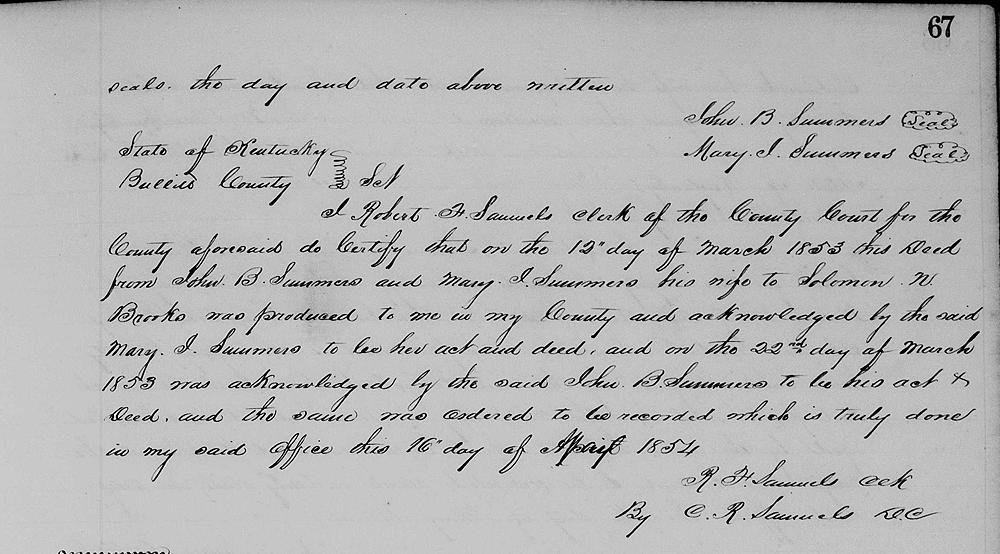 67
seals. the day and date above written
John. B. Summers Seal
Mary. I. Summers Seal
State of Kentucky
Bullitt County Sct
I Robert F. Samuels Clerk of the County Court for the
County aforesaid do Certify that on the 12" day of March 1853 this Deed
from John. B. Summers and Mary. I. Summers his wife to Solomon. N.
Brooks was produced to me in my County and acknowledged by the said
Mary. I. Summers to be her act and deed, and on the 22nd day of March
1853 was acknowledged by the said John. B. Summers to be his act &
Deed, and the same was ordered to be recorded which is truly done
in my said Office this 16" day of April 1854
R. F. Samuels Clk
By C. R. Samuels D.C